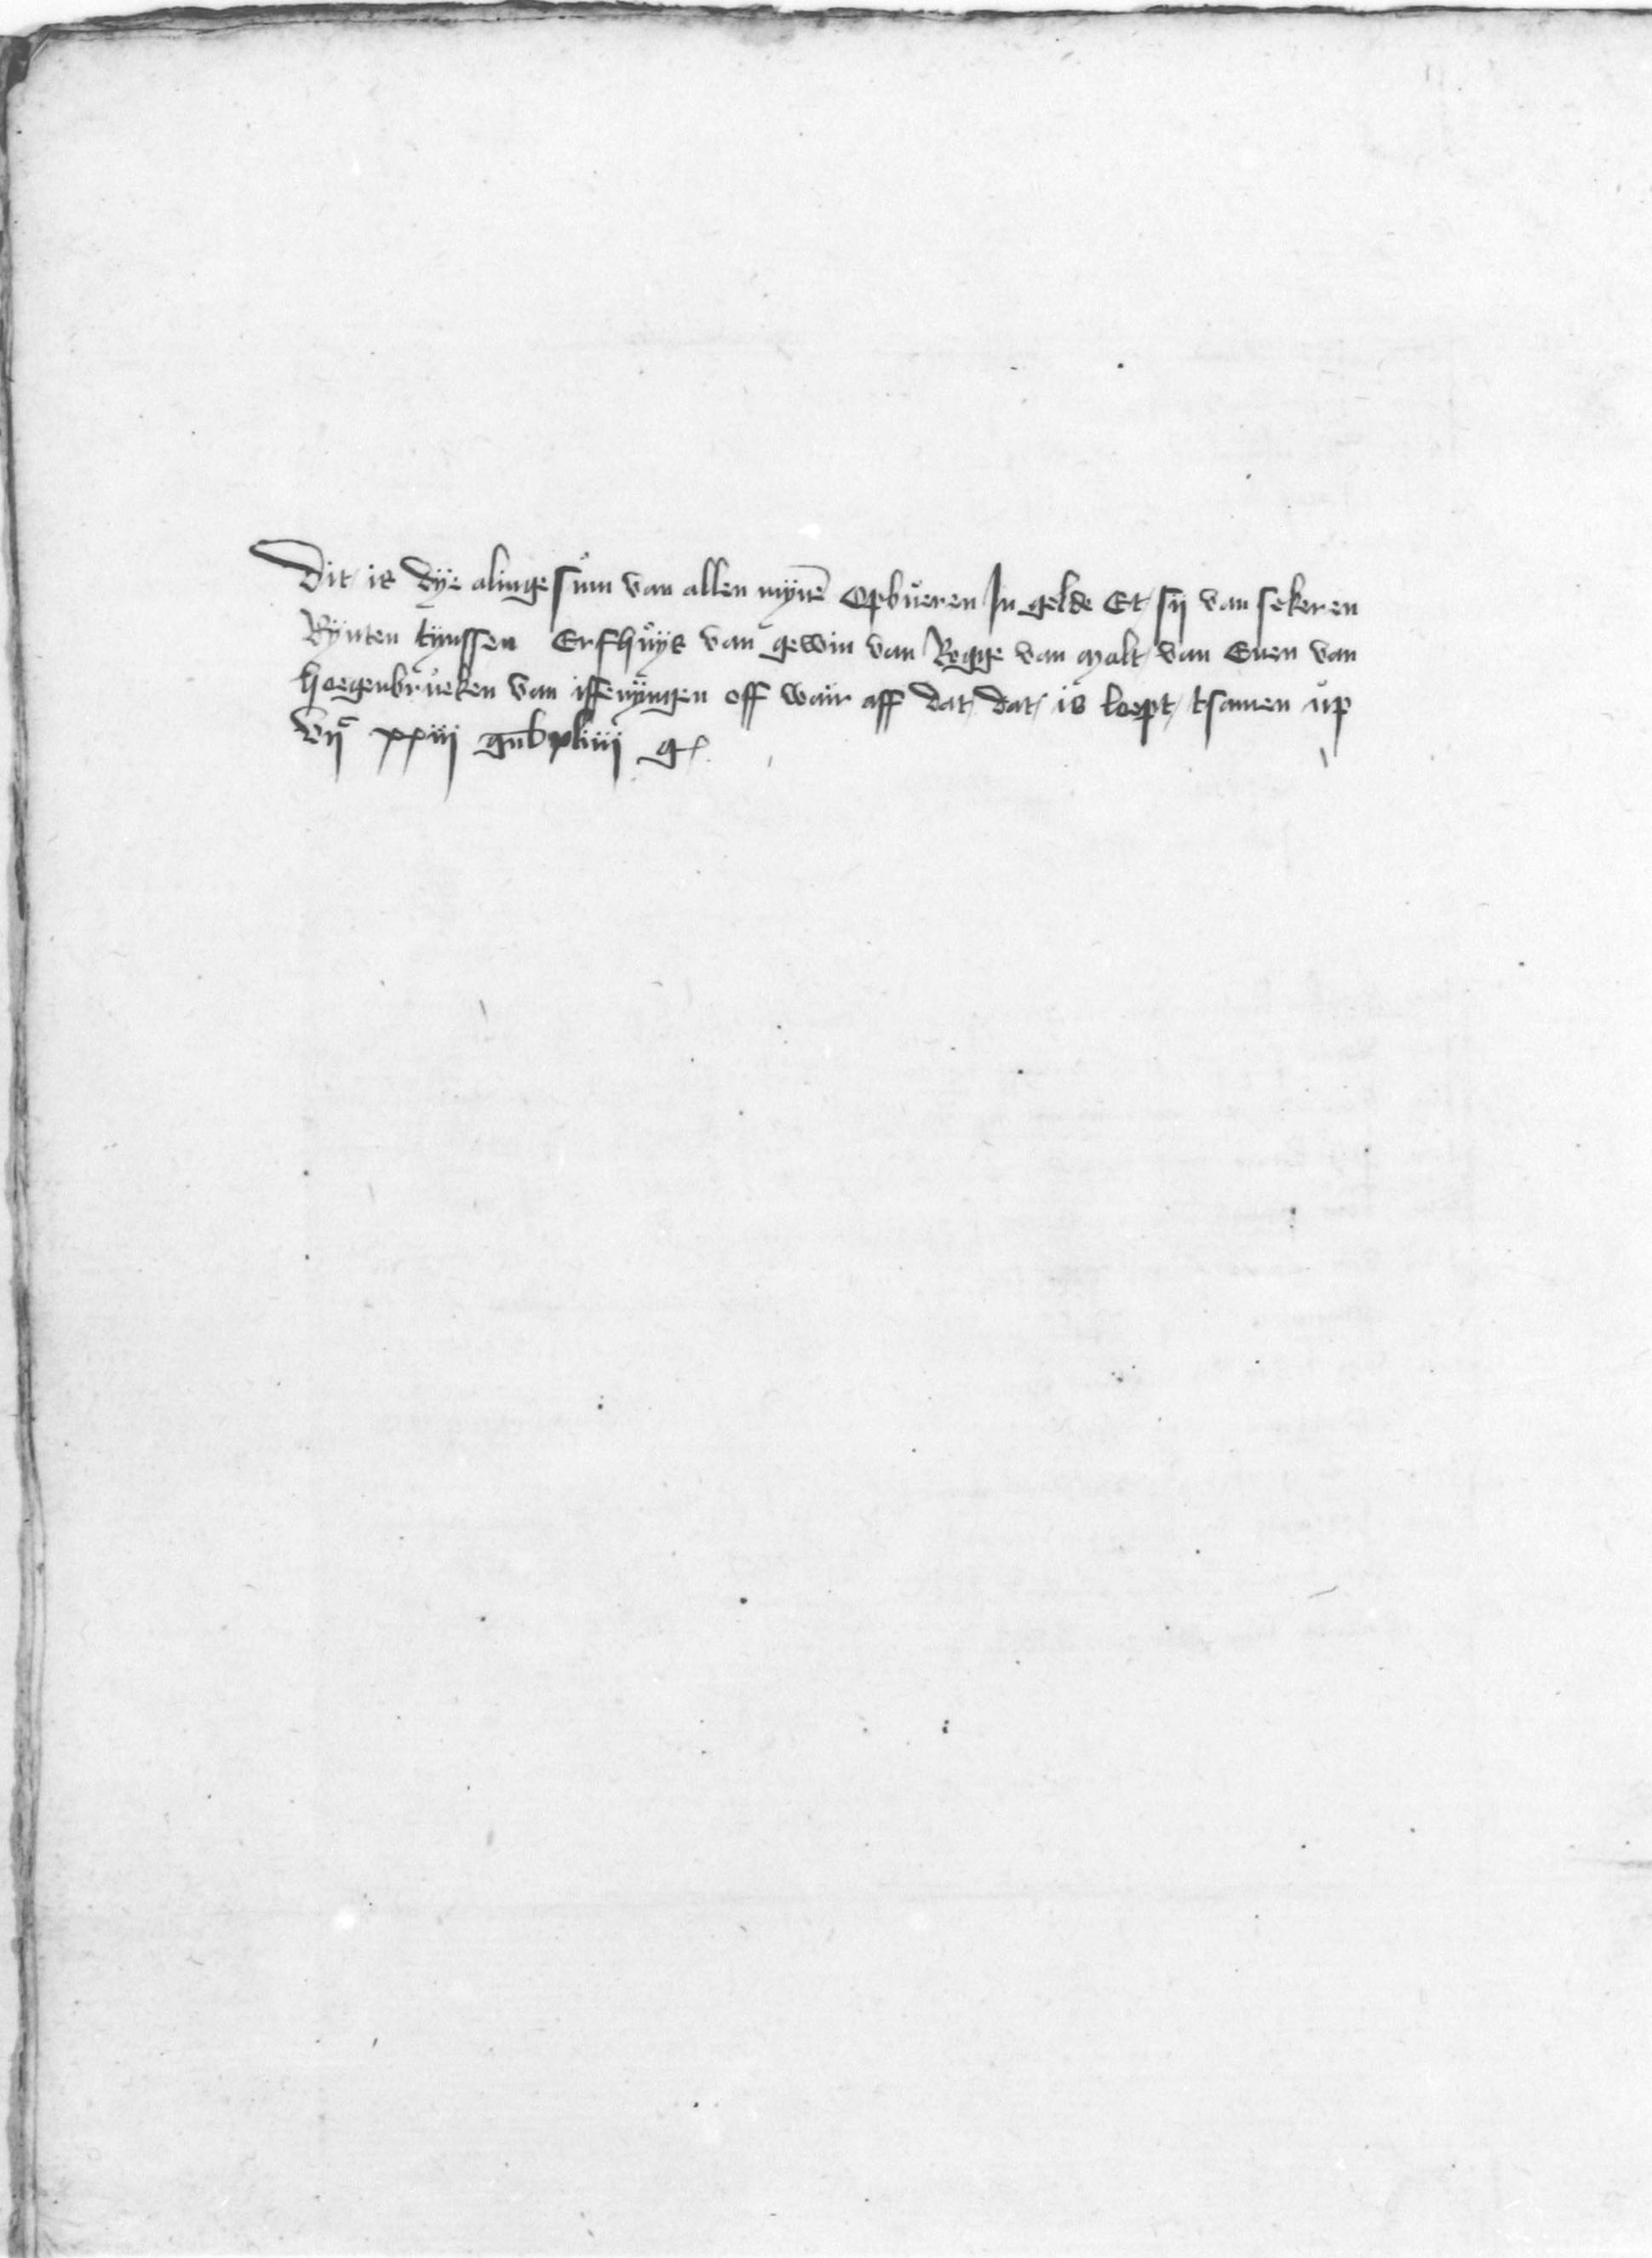 Dit is dye alinge sum van allen mynē Opbueren In gelde Et sy van sekeren
Rynten tynssen Erfhuys van gewin van Rogge van malt van Euen van
hoegenbrueken van uffenyngen off wair aff dat dat is loept tsamen up
vijᶜ xxiij gulb xliiij g